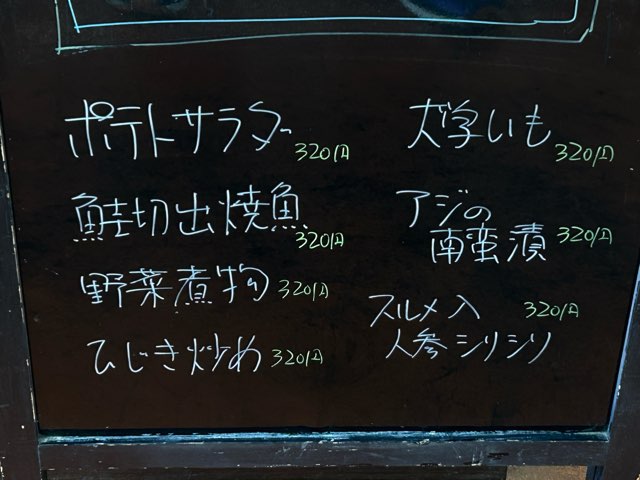 ポテトサラダ 320円
鮭切出焼魚 320円
野菜煮物 320円
ひじき炒め 320円
大学いも 320円
アジの
南蛮漬 320円
スルメ入 320円
人参シリシリ